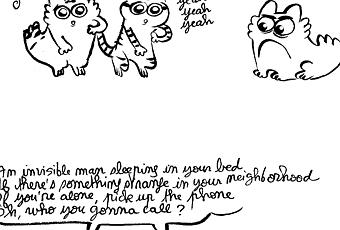 yeah
yeah
An invisible man sleeping in your bed
If there's something strange in your neighborhood
If you're alone, pick up the phone
Oh, who you gonna call?